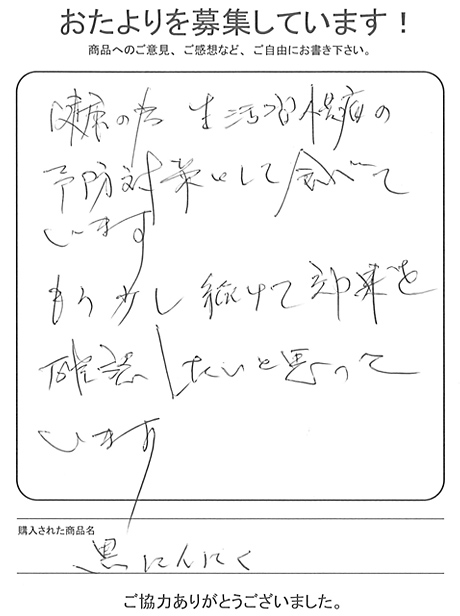 おたよりを募集しています！
商品へのご意見、ご感想など、ご自由にお書き下さい。
健康の為 生活習慣病の
予防対策として食べて
います
もう少し続けて効果を
確認したいと思って
います
購入された商品名
黒にんにく
ご協力ありがとうございました。